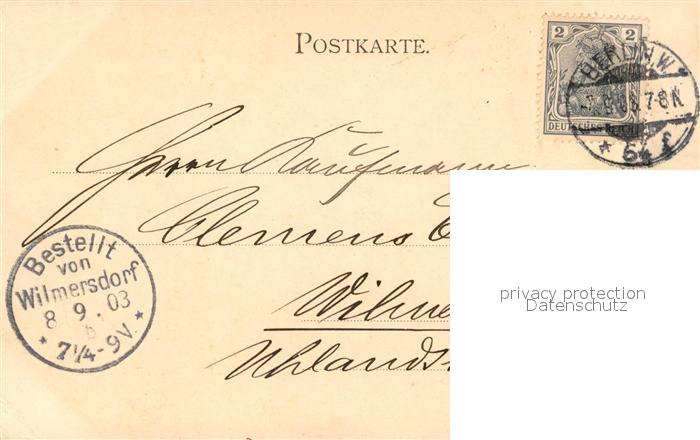 POSTKARTE.
2
DEUTSCHES REICH
BERLIN.W.
7-8N.
* 64 f
Herrn Kaufmann
Clemens
Wilme
Uhlands
Bestellt
von
Wilmersdorf
8 9.03
* 7 1/4-9V. *
privacy protection
Datenschutz